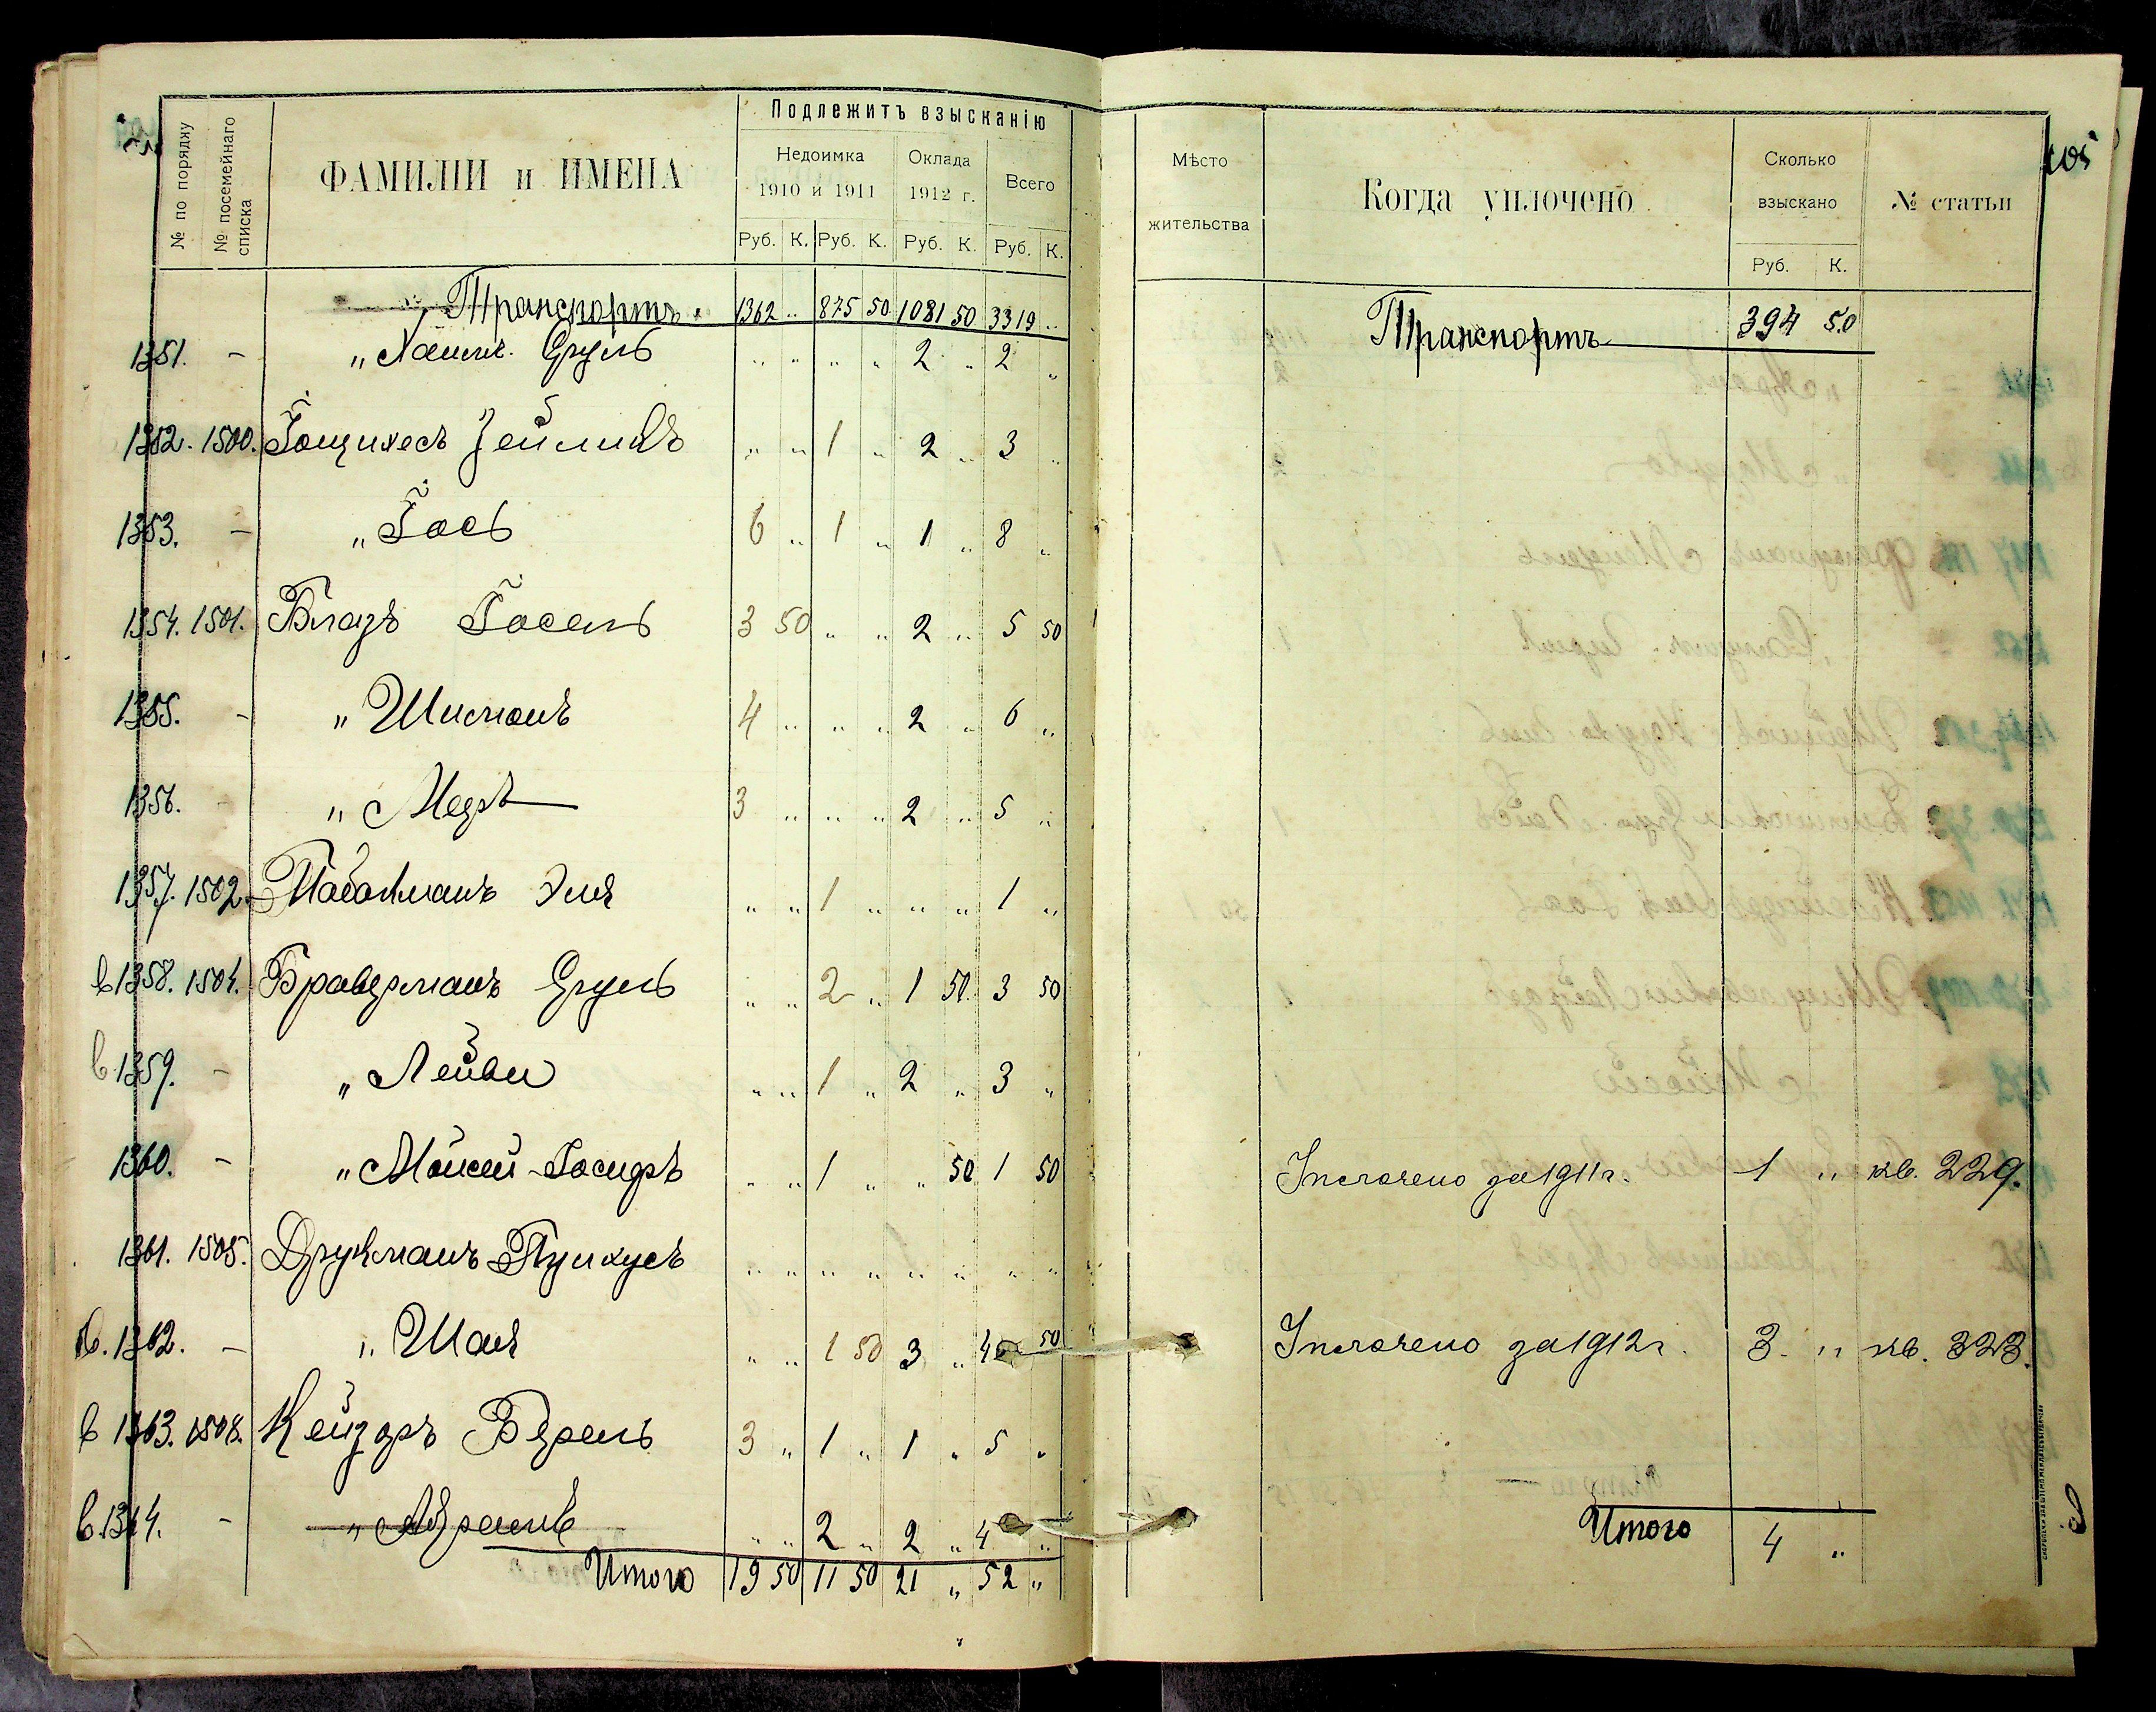 Подлежитъ взысканію
№ по порядку
№ посемейнаго списка
ФАМИЛІИ и ИМЕНА
Недоимка 1910 и 1911
Оклада 1912 г.
Всего
Руб. К. Руб. К. Руб. К. Руб. К.
Транспортъ 1362 „ 875 50 1081 50 3319 „
1351. - „ Срул „ „ „ „ 2 „ 2 „
1352. 1500. „ „ 1 „ 2 „ 3 „
1353. - „ Іось 6 „ 1 „ 1 „ 8 „
1354. 1501. Блазъ Іосель 3 50 „ „ 2 „ 5 50
1355. - „ Шиманъ 4 „ „ „ 2 „ 6 „
1356. - „ Мееръ 3 „ „ „ 2 „ 5 „
1357. 1502. Эля „ „ 1 „ „ „ 1 „
в 1358. 1504. Браверманъ Сруль „ „ 2 „ 1 50 3 50
в. 1359. - „ Лейви „ „ 1 „ 2 „ 3 „
1360. - „ Мойсей-Іосифъ „ „ 1 „ „ 50 1 50
1361. 1505. Друкманъ Пинхусъ „ „ „ „ „ „ „ „
в. 1362. - „ Шая „ „ 1 50 3 „ 4 50
в 1363. 1508. Кейзеръ Берель 3 „ 1 „ 1 „ 5 „
в. 1364. - „ Абрамъ „ „ 2 „ 2 „ 4 „
Итого 19 50 11 50 21 „ 52 „
105
Мѣсто жительства
Когда уплочено
Сколько взыскано
№ статьи
Руб. К.
Транспортъ 394 50
Уплочено за 1911 г. 1 „ кв. 229.
Уплочено за 1912 г. 3. „ кв. 323.
Итого 4 „